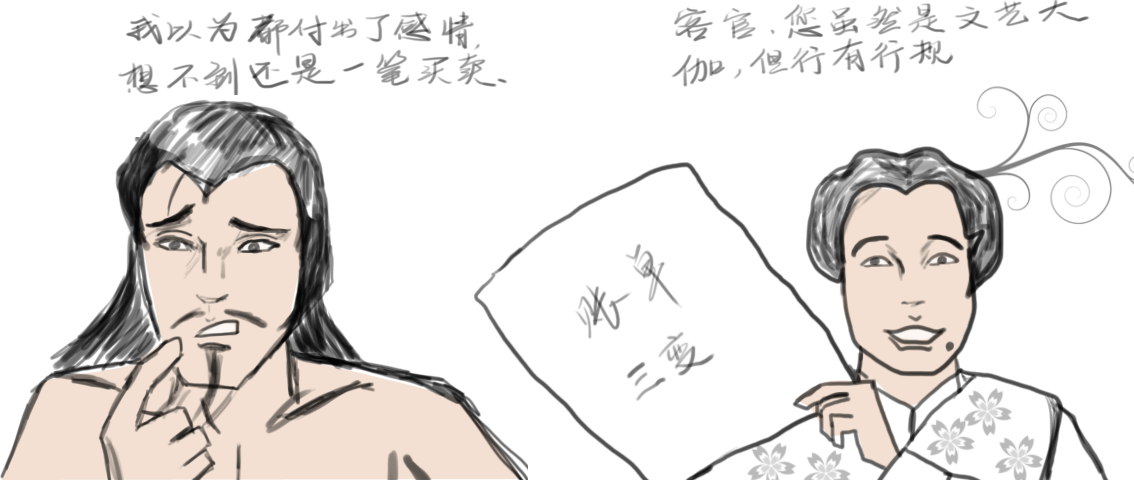 我以为都付出了感情,
想不到还是一笔买卖、
客官,您虽然是文艺大
伽,但行有行规
账单
三变